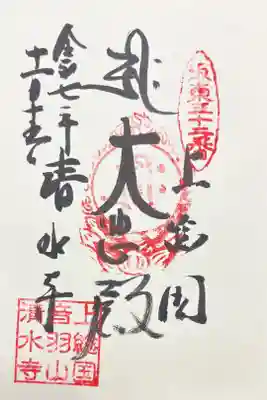 坂東三十二番
上総国
大悲殿
令和七年 清水寺
十一月十五日
上総国
音羽山
清水寺